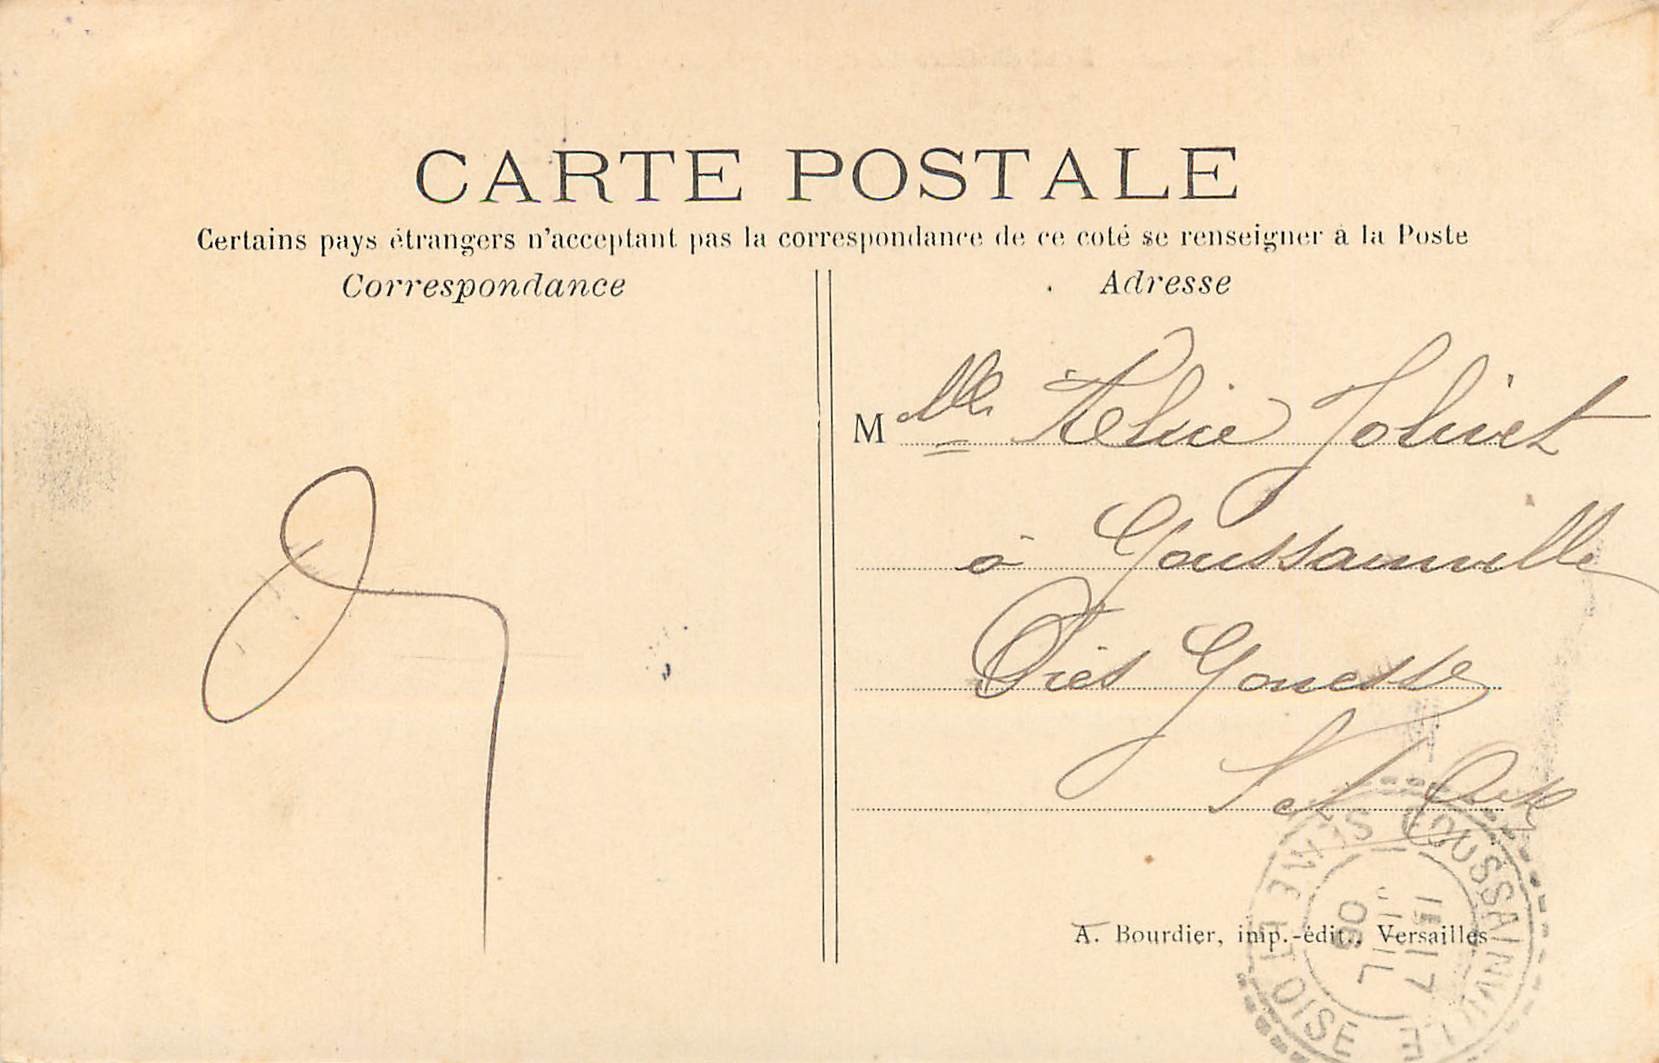 CARTE POSTALE
Certains pays étrangers n'acceptant pas la correspondance de ce coté se renseigner à la Poste
Correspondance
Adresse
M lle Jolivet
à Goussainville
Près Gonesse
S et Oise
A. Bourdier, imp.-édit., Versailles
GOUSSAINVILLE
SEINE ET OISE
JUIL